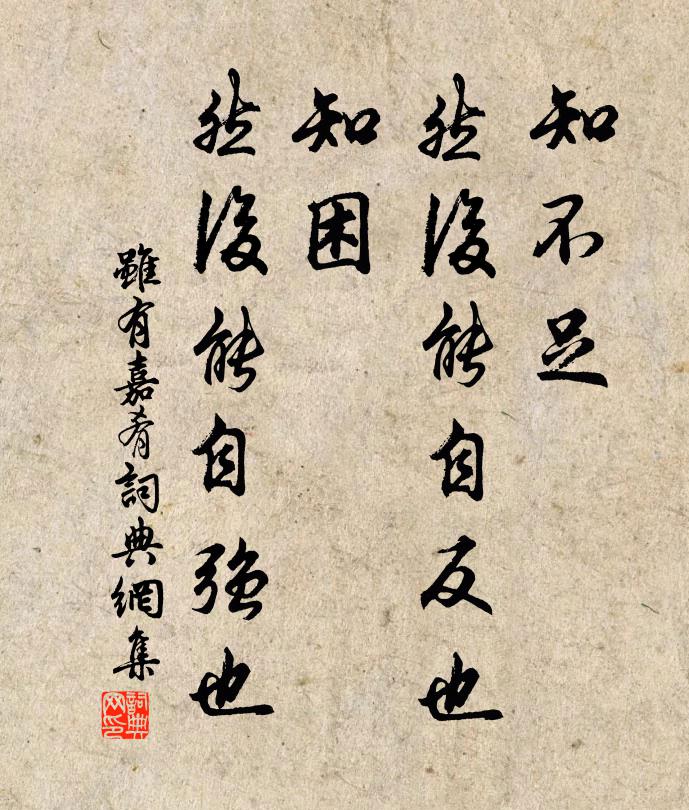 知不足
然後能自反也
知困
然後能自强也
雖有嘉肴詞典網集
詞典网印